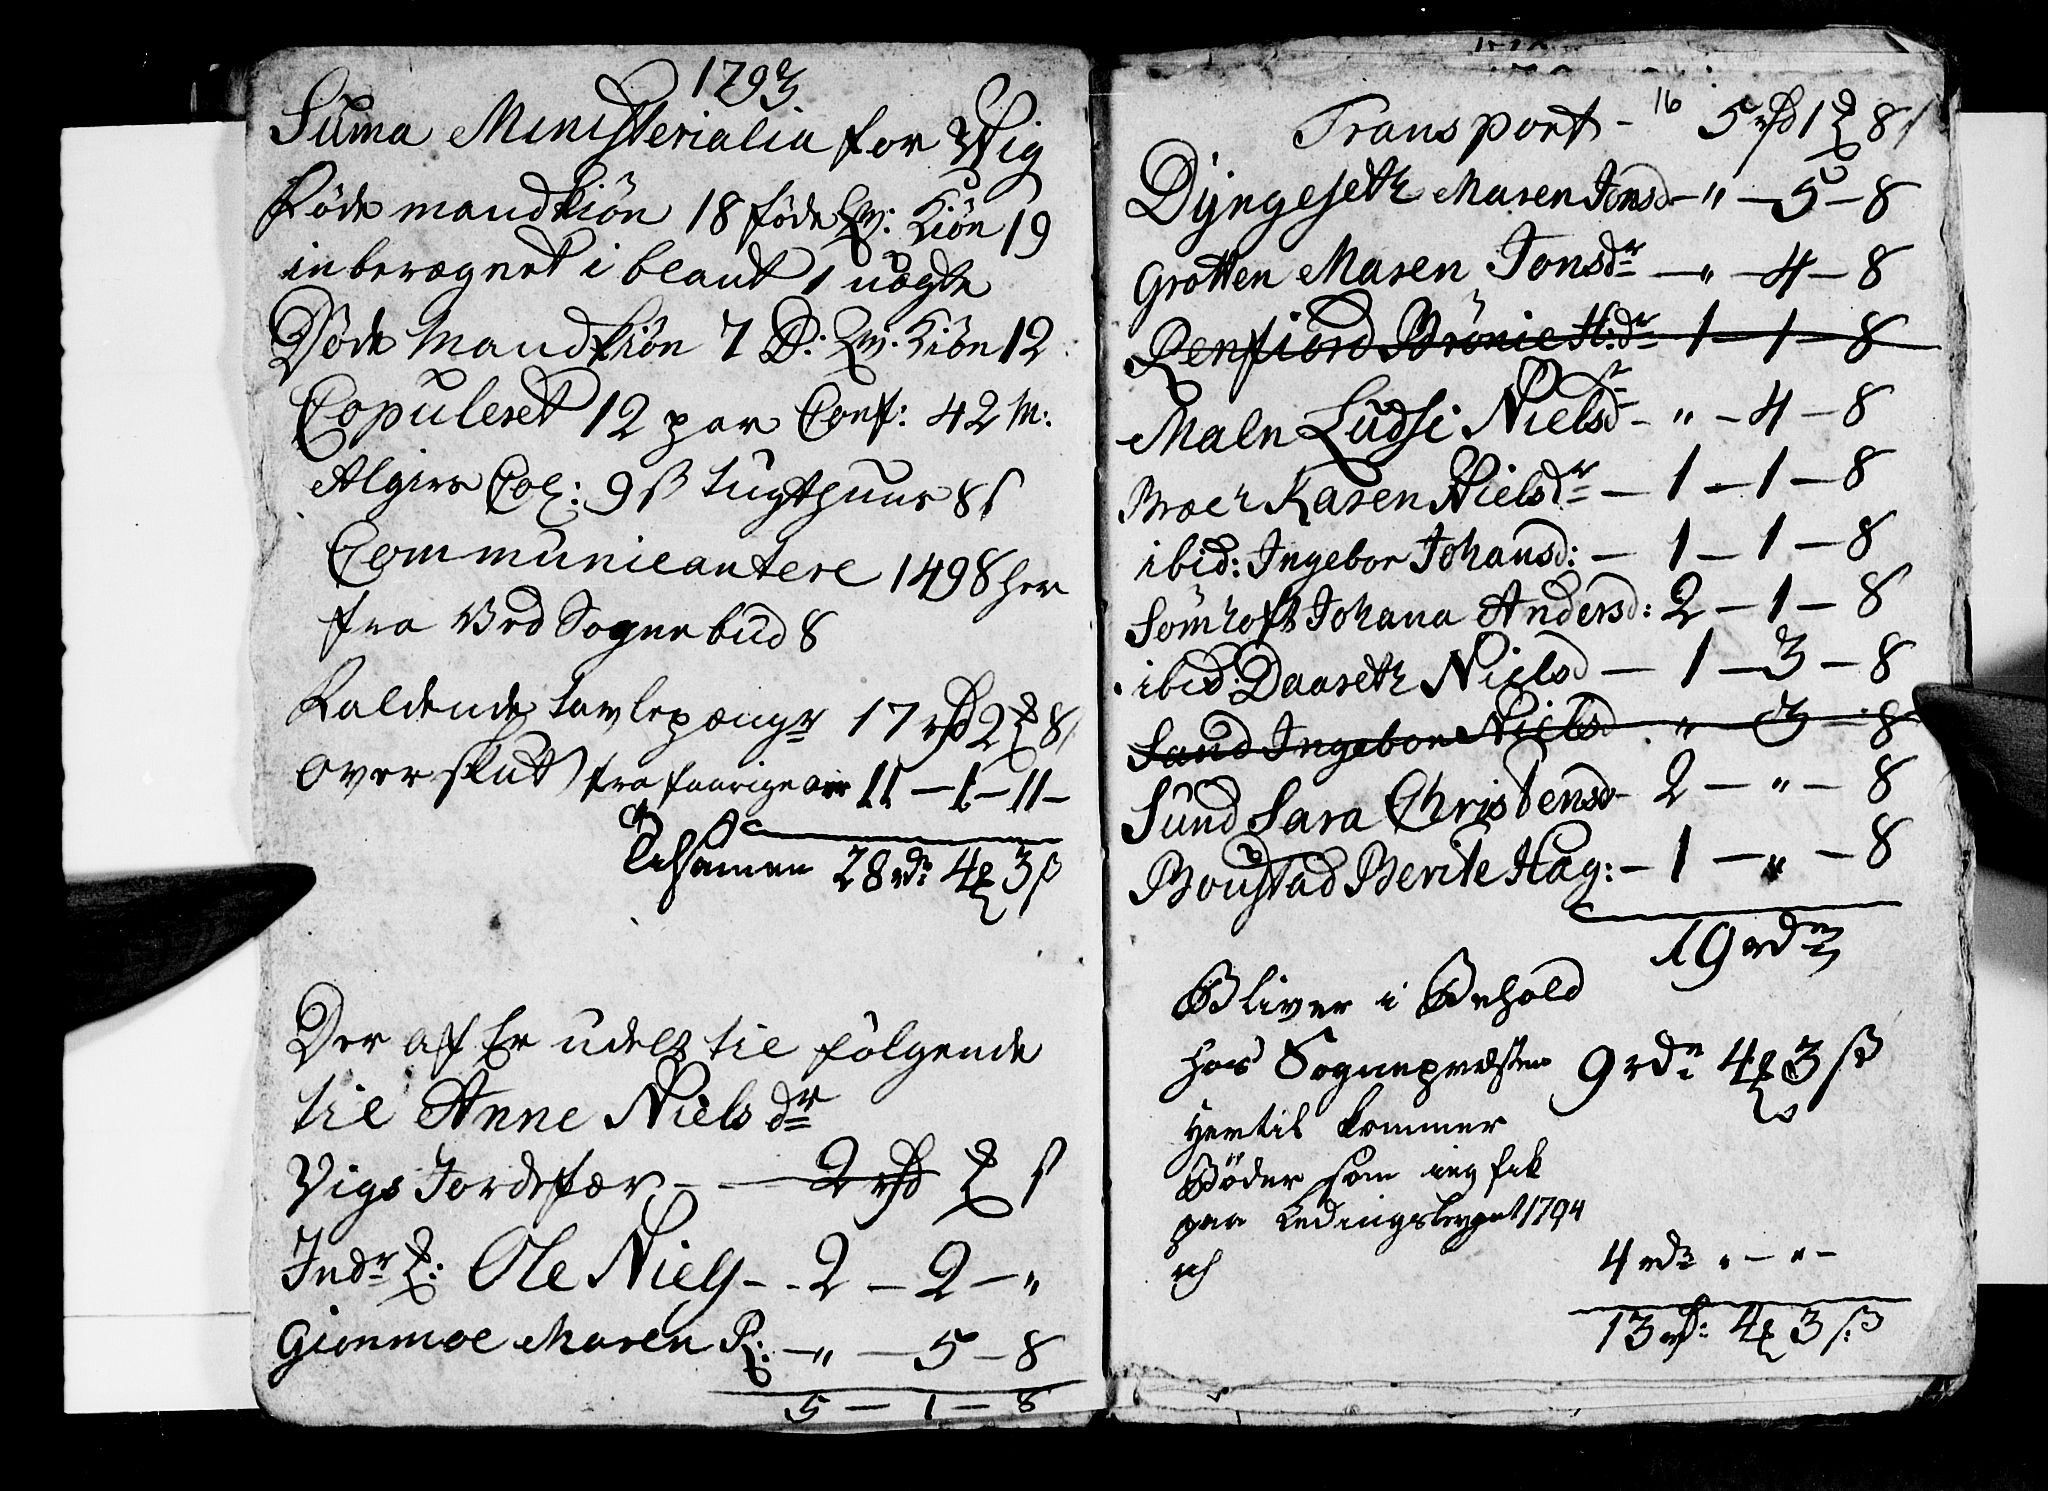 1793
Suma Ministerialia for Wig
Føde mandkiön 18 føde Qv: Kiön 19
inberægnet i blant 1 uægte
Døde Mandkiön 7 D: Qv: Kiön 12
Copuleret 12 par Conf: 42 M:
Algiers Col: 9 ß tugthuus 8 ß
Communicantere 1498 her
fra Ved Sognebud 8
Faldende tavlepænger 17 rd 2 8
Over skut fra forrige aar 11 – 1 – 11 –
Tilsamen 28 rdr 4 3 ß
Der af Er udelt til følgende
til Anne Niels dr
Vigs Jordefær – – 2 rd
Indr Ole Niels – – 2 – 2 – "
Gionmoe Maren P: – " – 5 – 8
5 – 1 – 8
Transport – 16 5 rd 1 8
Dyngeseth Maren Jonsd – " – 5 – 8
Grotten Maren Jonsdr – " – 4 – 8
Renfiord Brönie H:dr 1 – 1 – 8
Maln Ludsi Nielsdr – " – 4 – 8
Broch Karen Nielsdr – 1 – 1 – 8
ibid: Ingebor Johansd: – 1 – 1 – 8
Sömhoft Johana Andersd: 2 – 1 – 8
ibid: Daareth Nielsd – 1 – 3 – 8
Sand Ingebor Nielsd " 3 – 8
Sund Sara Christensd – 2 – " – 8
Boustad Berite Hag: – 1 – " – 8
19 rdr
Bliver i Behold
hos Sognepræsten 9 rdr 4 3 ß
Hertil kommer
Böder som ieg fik
paa Ledingsberget 1794
4 rdr " – " –
13 rd: 4 3 ß